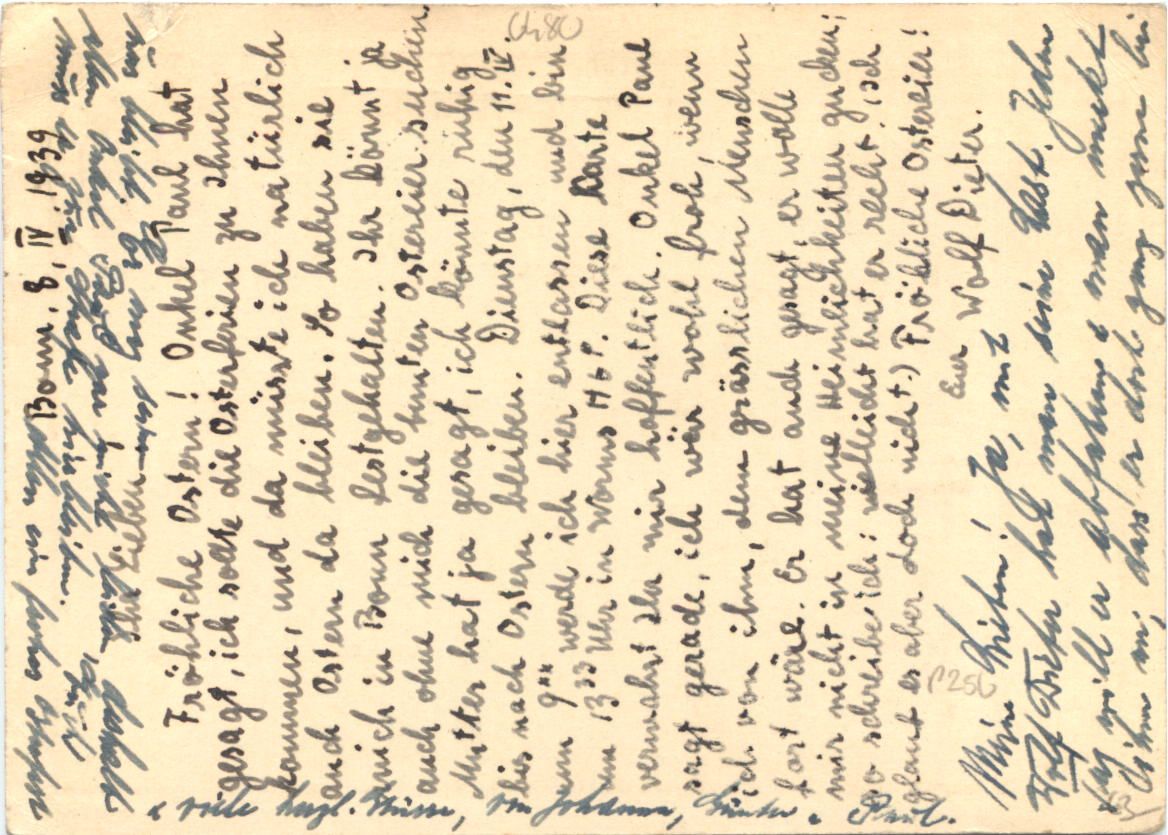 Bonn, 8. IV 1939
Ihr Lieben
Fröhliche Ostern! Onkel Paul hat
gesagt, ich sollte die Osterferien zu Ihnen
kommen, und da müsste ich natürlich
auch Ostern da bleiben. So haben sie
mich in Bonn festgehalten. Ihr könnt ja
auch ohne mich die bunten Ostereier suchen.
Mutter hat ja gesagt, ich könnte ruhig
bis nach Ostern bleiben. Dienstag, den 11. IV.
um 9 werde ich hier entlassen und bin
um 13 33 Uhr in Worms Hbf. Diese Karte
verwahrt Ihr mir hoffentlich. Onkel Paul
sagt gerade, ich wär wohl froh, wenn
ich von ihm, dem grässlichen Menschen
fort wäre. Er hat auch gesagt, er wolle
mir nicht in meine Heimlichkeiten gucken;
so schreibe ich: vielleicht hat er recht. (Ich
glaub es aber doch nicht.) Fröhliche Ostereier!
Euer Wolf Dieter.
Meine Lieben! Ja, mit
Wolf Dieter hat man seine Last. Jeden
Tag will er abfahren und man merkt
es ihm an, dass er doch ganz gern bei
uns bleibt.
Allen ein frohes Ostern
u. viele herzl. Grüsse, von Johanna, Günter u. Paul.
Ch 80
P256